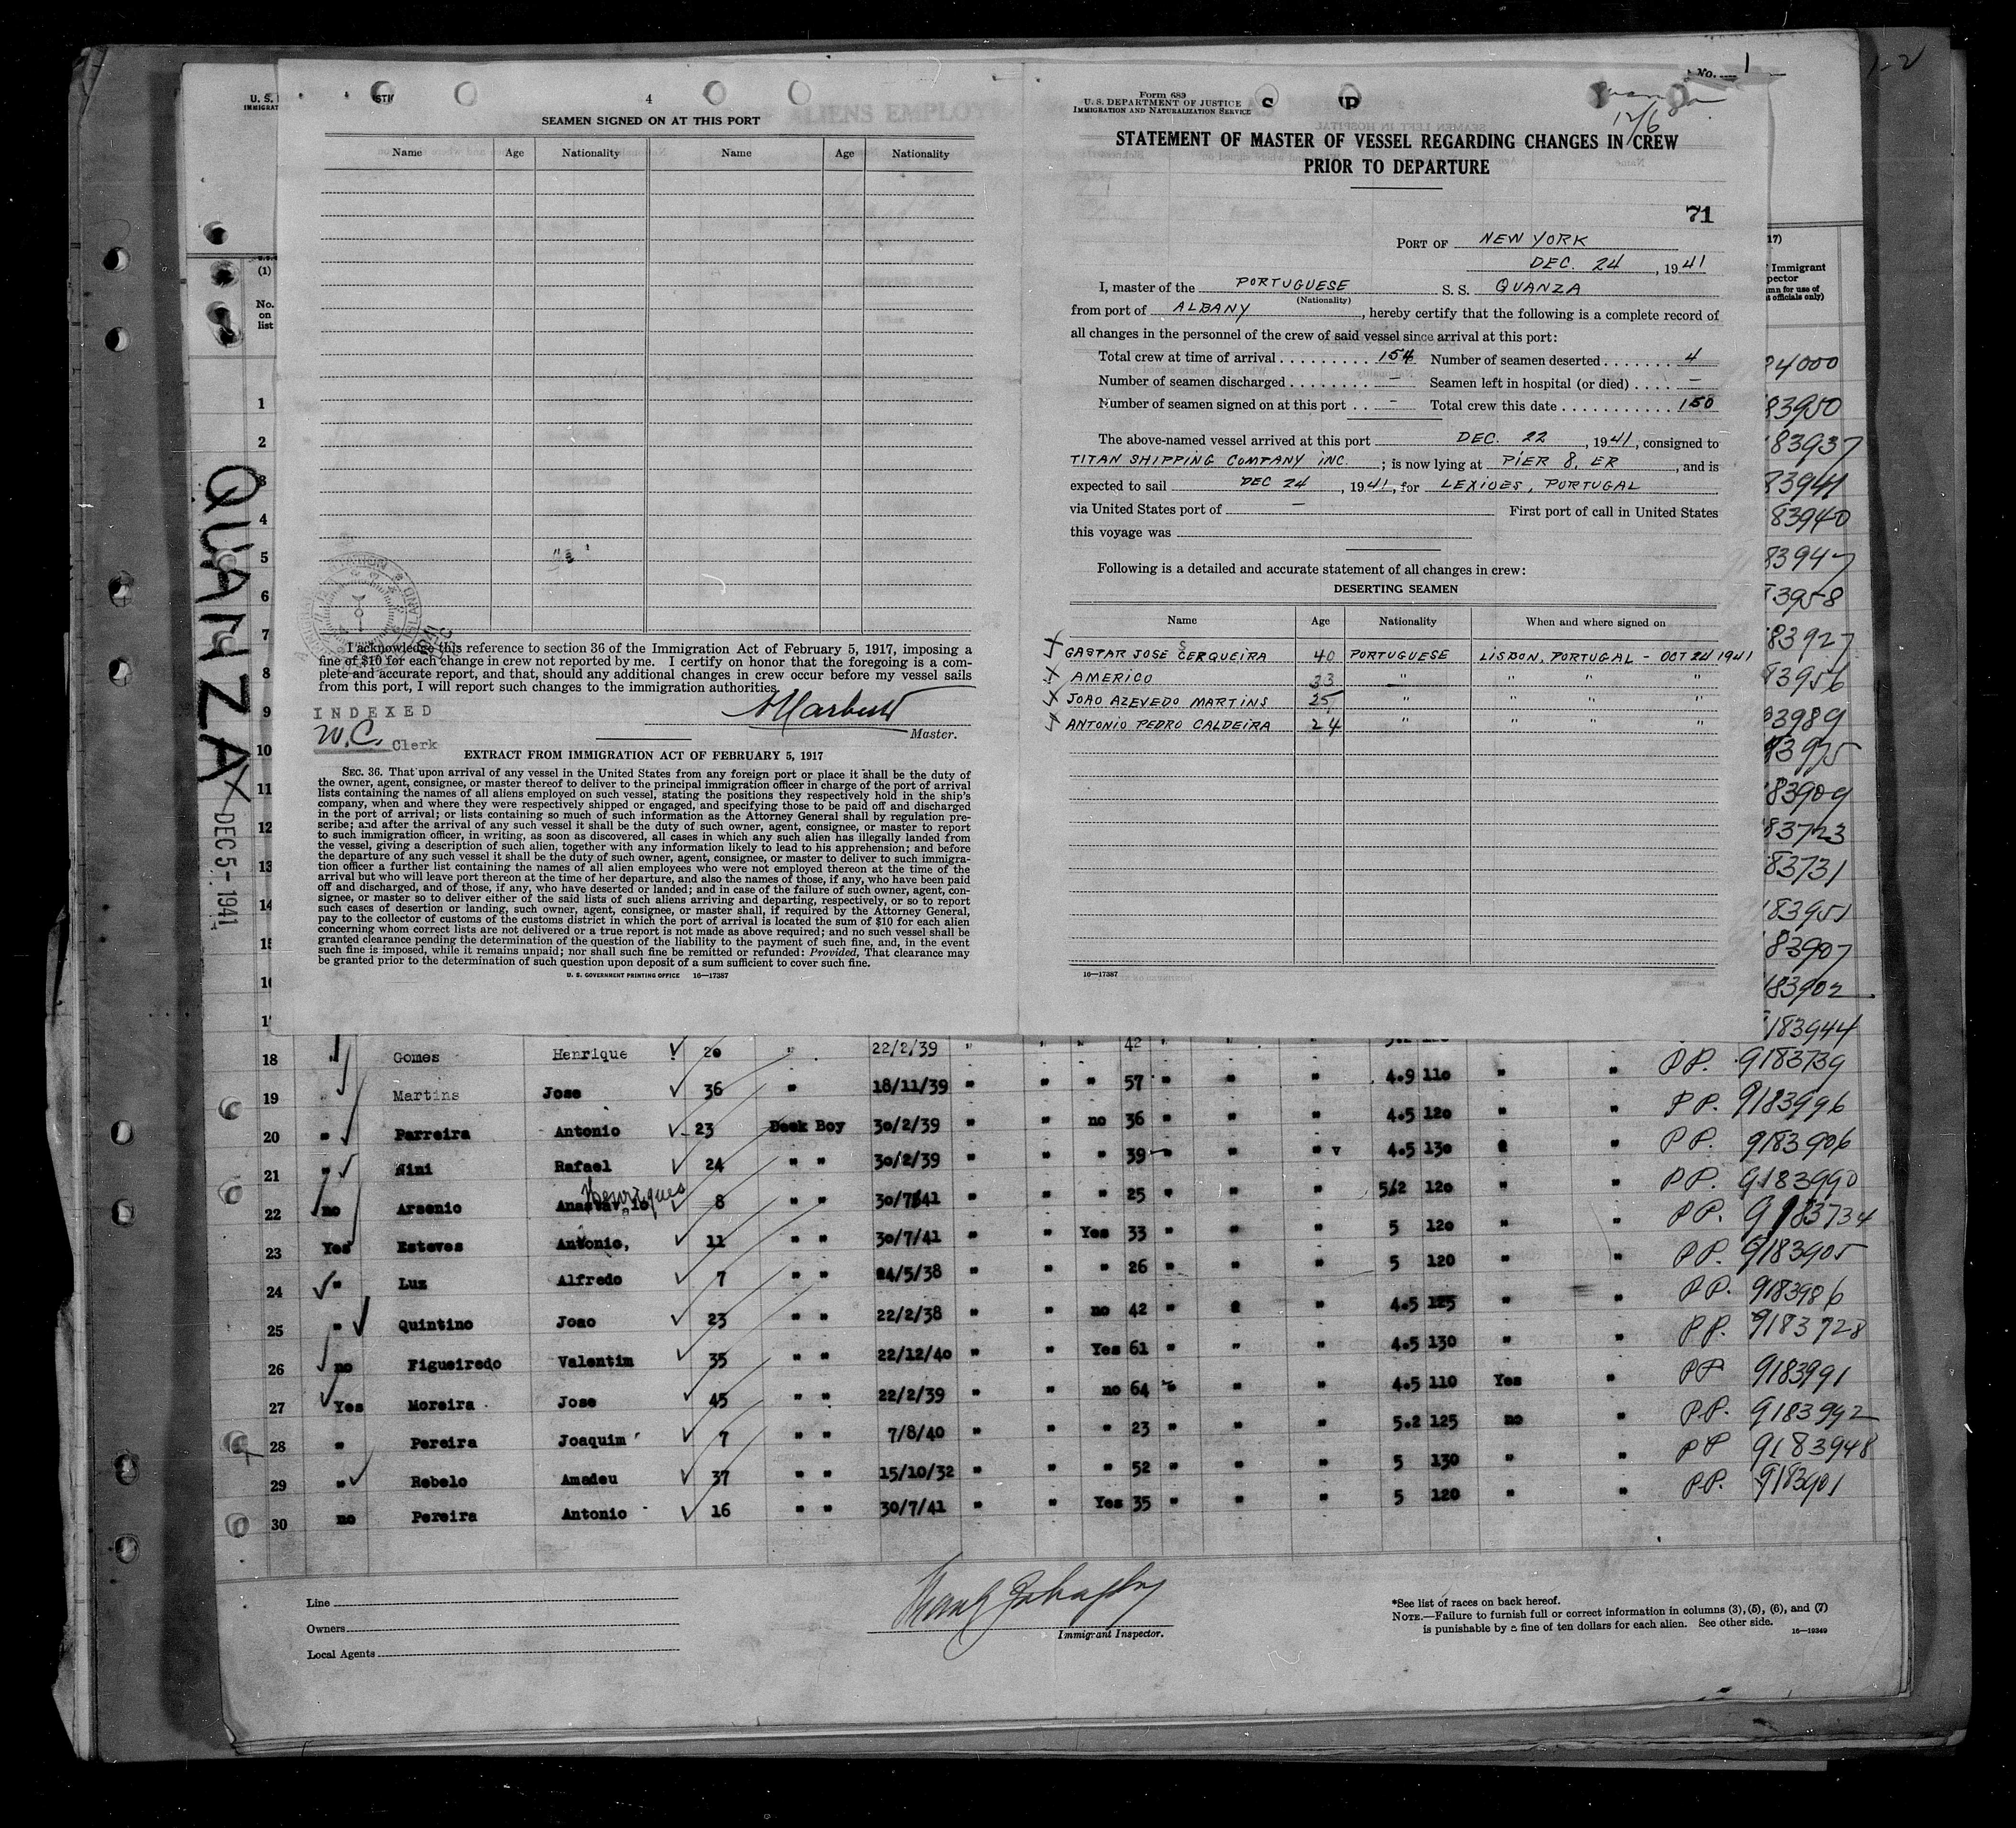 U. S.
IMMIGRAT
4
SEAMEN SIGNED ON AT THIS PORT
Name Age Nationality Name Age Nationality
I acknowledge this reference to section 36 of the Immigration Act of February 5, 1917, imposing a
fine of $10 for each change in crew not reported by me. I certify on honor that the foregoing is a com-
plete and accurate report, and that, should any additional changes in crew occur before my vessel sails
from this port, I will report such changes to the immigration authorities.
INDEXED
W.C. Clerk
Master.
EXTRACT FROM IMMIGRATION ACT OF FEBRUARY 5, 1917
SEC. 36. That upon arrival of any vessel in the United States from any foreign port or place it shall be the duty of
the owner, agent, consignee, or master thereof to deliver to the principal immigration officer in charge of the port of arrival
lists containing the names of all aliens employed on such vessel, stating the positions they respectively hold in the ship's
company, when and where they were respectively shipped or engaged, and specifying those to be paid off and discharged
in the port of arrival; or lists containing so much of such information as the Attorney General shall by regulation pre-
scribe; and after the arrival of any such vessel it shall be the duty of such owner, agent, consignee, or master to report
to such immigration officer, in writing, as soon as discovered, all cases in which any such alien has illegally landed from
the vessel, giving a description of such alien, together with any information likely to lead to his apprehension; and before
the departure of any such vessel it shall be the duty of such owner, agent, consignee, or master to deliver to such immigra-
tion officer a further list containing the names of all alien employees who were not employed thereon at the time of the
arrival but who will leave port thereon at the time of her departure, and also the names of those, if any, who have been paid
off and discharged, and of those, if any, who have deserted or landed; and in case of the failure of such owner, agent, con-
signee, or master so to deliver either of the said lists of such aliens arriving and departing, respectively, or so to report
such cases of desertion or landing, such owner, agent, consignee, or master shall, if required by the Attorney General,
pay to the collector of customs of the customs district in which the port of arrival is located the sum of $10 for each alien
concerning whom correct lists are not delivered or a true report is not made as above required; and no such vessel shall be
granted clearance pending the determination of the question of the liability to the payment of such fine, and, in the event
such fine is imposed, while it remains unpaid; nor shall such fine be remitted or refunded: Provided, That clearance may
be granted prior to the determination of such question upon deposit of a sum sufficient to cover such fine.
U. S. GOVERNMENT PRINTING OFFICE 16—17387
No. 1
Form 689
U. S. DEPARTMENT OF JUSTICE
IMMIGRATION AND NATURALIZATION SERVICE
12/6
STATEMENT OF MASTER OF VESSEL REGARDING CHANGES IN CREW
PRIOR TO DEPARTURE
71
PORT OF NEW YORK
DEC. 24, 1941
I, master of the PORTUGUESE S. S. QUANZA
(Nationality)
from port of ALBANY, hereby certify that the following is a complete record of
all changes in the personnel of the crew of said vessel since arrival at this port:
Total crew at time of arrival 154 Number of seamen deserted 4
Number of seamen discharged — Seamen left in hospital (or died) —
Number of seamen signed on at this port — Total crew this date 150
The above-named vessel arrived at this port DEC. 22, 1941, consigned to
TITAN SHIPPING COMPANY INC.; is now lying at PIER 8, ER, and is
expected to sail DEC 24, 1941, for LEXIOES, PORTUGAL
via United States port of — First port of call in United States
this voyage was
Following is a detailed and accurate statement of all changes in crew:
DESERTING SEAMEN
Name Age Nationality When and where signed on
GASTAR JOSE CERQUEIRA 40 PORTUGUESE LISBON, PORTUGAL - OCT 24 1941
AMERICO 33 " " " "
JOAO AZEVEDO MARTINS 25 " " " "
ANTONIO PEDRO CALDEIRA 24 " " " "
16—17387
QUANZA
X DEC 5 - 1941
(1)
No.
on
list
1
2
3
4
5
6
7
8
9
10
11
12
13
14
15
17)
Immigrant
pector
mn for use of
t officials only)
24000
83950
83937
83941
83940
83947
3958
83927
83956
83989
83975
83909
83723
83731
183951
83907
183902
183944
18 Gomes Henrique 20 " 22/2/39 " " " 42 " " "
PP. 9183739
19 Martins Jose 36 " 18/11/39 " " " 57 " " " 4.9 110 " "
PP. 9183996
20 " Parreira Antonio 23 Deck Boy 30/2/39 " " no 36 " " " 4.5 120 " "
PP. 9183906
21 " Nini Rafael 24 " " 30/2/39 " " " 39 " " " 4.5 130 " "
PP. 9183990
22 no Arsenio Henriques 8 " " 30/7/41 " " " 25 " " " 5/2 120 " "
PP. 9183734
23 Yes Esteves Antonio, 11 " " 30/7/41 " " Yes 33 " " " 5 120 " "
PP. 9183905
24 " Luz Alfredo 7 " " 24/5/38 " " " 26 " " " 5 120 " "
PP. 9183986
25 " Quintino Joao 23 " " 22/2/38 " " no 42 " " " 4.5 125 " "
PP. 9183728
26 no Figueiredo Valentim 35 " " 22/12/40 " " Yes 61 " " " 4.5 130 " "
PP 9183991
27 Yes Moreira Jose 45 " " 22/2/39 " " no 64 " " " 4.5 110 Yes "
PP. 9183992
28 " Pereira Joaquim 7 " " 7/8/40 " " " 23 " " " 5.2 125 no "
PP 9183948
29 " Rebelo Amadeu 37 " " 15/10/32 " " " 52 " " " 5 130 " "
PP. 9183901
30 no Pereira Antonio 16 " " 30/7/41 " " Yes 35 " " " 5 120 " "
Line
Owners
Local Agents
Immigrant Inspector.
*See list of races on back hereof.
NOTE.—Failure to furnish full or correct information in columns (3), (5), (6), and (7)
is punishable by a fine of ten dollars for each alien. See other side.
16—19349